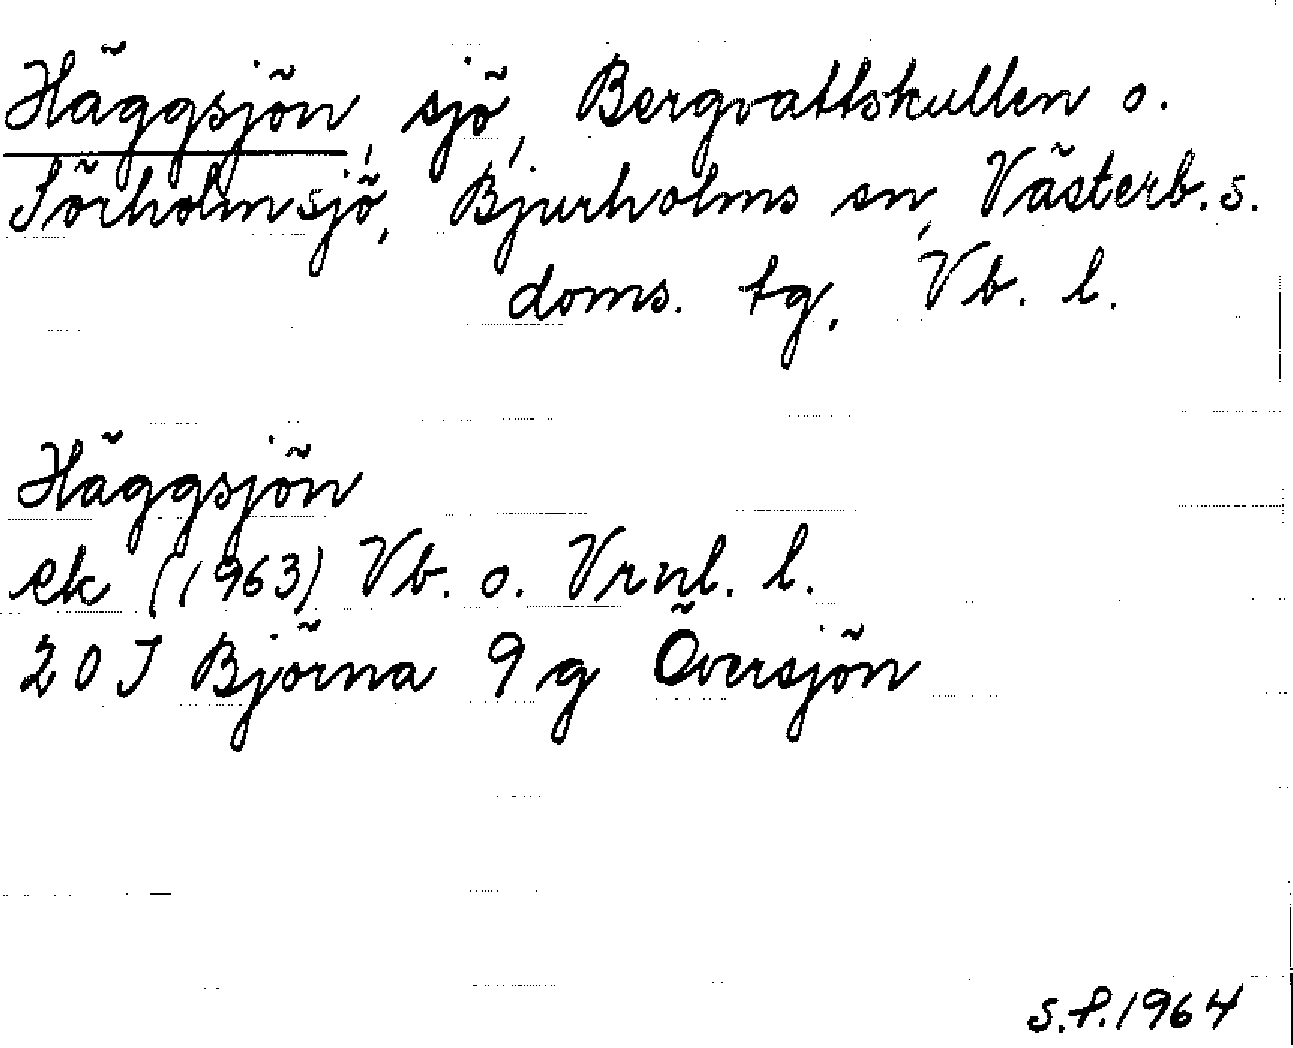 Häggsjön, sjö, Bergvattskullen o.
Sörholmsjö, Bjurholms sn, Västerb. s.
doms. tg, Vb. l.
Häggsjön
ek (1963) Vb. o. Vrnl. l.
20 J Björna 9 g Översjön
S.P. 1964